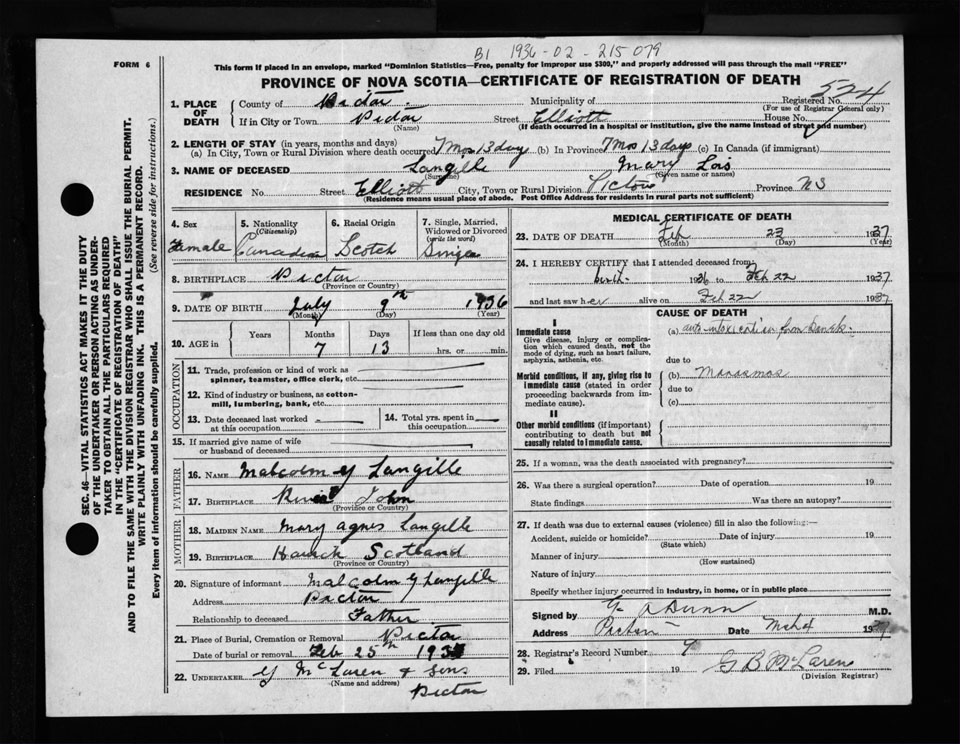 B1 1936-02-215079
FORM 6
This form if placed in an envelope, marked "Dominion Statistics—Free, penalty for improper use $300," and properly addressed will pass through the mail "FREE"
PROVINCE OF NOVA SCOTIA—CERTIFICATE OF REGISTRATION OF DEATH
524
1. PLACE OF DEATH County of Pictou Municipality of Registered No.
(For use of Registrar General only)
If in City or Town Pictou Street Elliott House No.
(Name) (If death occurred in a hospital or institution, give the name instead of street and number)
2. LENGTH OF STAY (in years, months and days)
(a) In City, Town or Rural Division where death occurred 7 Mos 13 day (b) In Province 7 Mos 13 days (c) In Canada (if immigrant)
3. NAME OF DECEASED Langille Mary Lois
(Surname) (Given name or names)
RESIDENCE No. Street Elliott City, Town or Rural Division Pictou Province NS
(Residence means usual place of abode. Post Office Address for residents in rural parts not sufficient)
4. Sex
Female
5. Nationality
(Citizenship)
Canadian
6. Racial Origin
Scotch
7. Single, Married, Widowed or Divorced
(write the word)
Single
8. BIRTHPLACE Pictou
(Province or Country)
9. DATE OF BIRTH July 9th 1936
(Month) (Day) (Year)
10. AGE in Years Months Days If less than one day old
7 13 hrs. or min.
OCCUPATION
11. Trade, profession or kind of work as
spinner, teamster, office clerk, etc.
12. Kind of industry or business, as cotton-
mill, lumbering, bank, etc.
13. Date deceased last worked
at this occupation
14. Total yrs. spent in
this occupation
15. If married give name of wife
or husband of deceased
FATHER
16. NAME Malcolm G Langille
17. BIRTHPLACE River John
(Province or Country)
MOTHER
18. MAIDEN NAME Mary Agnes Langille
19. BIRTHPLACE Hawick Scotland
(Province or Country)
20. Signature of informant Malcolm G Langille
Address Pictou
Relationship to deceased Father
21. Place of Burial, Cremation or Removal Pictou
Date of burial or removal Feb 25th 193
22. UNDERTAKER McLaren & Sons
(Name and address)
Pictou
MEDICAL CERTIFICATE OF DEATH
23. DATE OF DEATH Feb 23 1937
(Month) (Day) (Year)
24. I HEREBY CERTIFY that I attended deceased from
birth 1936 Feb 22 1937
and last saw her alive on Feb 22 1937
CAUSE OF DEATH
I
Immediate cause
Give disease, injury or complica-
tion which caused death, not the
mode of dying, such as heart failure,
asphyxia, asthenia, etc.
(a) auto intoxication from
due to
Morbid conditions, if any, giving rise to
immediate cause (stated in order
proceeding backwards from im-
mediate cause).
(b) Marasmas
due to
(c)
II
Other morbid conditions (if important)
contributing to death but not
causally related to immediate cause.
25. If a woman, was the death associated with pregnancy?
26. Was there a surgical operation? Date of operation 19
State findings Was there an autopsy?
27. If death was due to external causes (violence) fill in also the following:—
Accident, suicide or homicide? Date of injury 19
(State which)
Manner of injury
(How sustained)
Nature of injury
Specify whether injury occurred in industry, in home, or in public place
Signed by G A Dunn M.D.
Address Pictou Date Mch 4 1937
28. Registrar's Record Number 9
29. Filed 19 G B McLaren
(Division Registrar)
SEC. 46—VITAL STATISTICS ACT MAKES IT THE DUTY
OF THE UNDERTAKER OR PERSON ACTING AS UNDER-
TAKER TO OBTAIN ALL THE PARTICULARS REQUIRED
IN THE "CERTIFICATE OF REGISTRATION OF DEATH"
AND TO FILE THE SAME WITH THE DIVISION REGISTRAR WHO SHALL ISSUE THE BURIAL PERMIT.
WRITE PLAINLY WITH UNFADING INK. THIS IS A PERMANENT RECORD.
Every item of information should be carefully supplied. (See reverse side for instructions.)